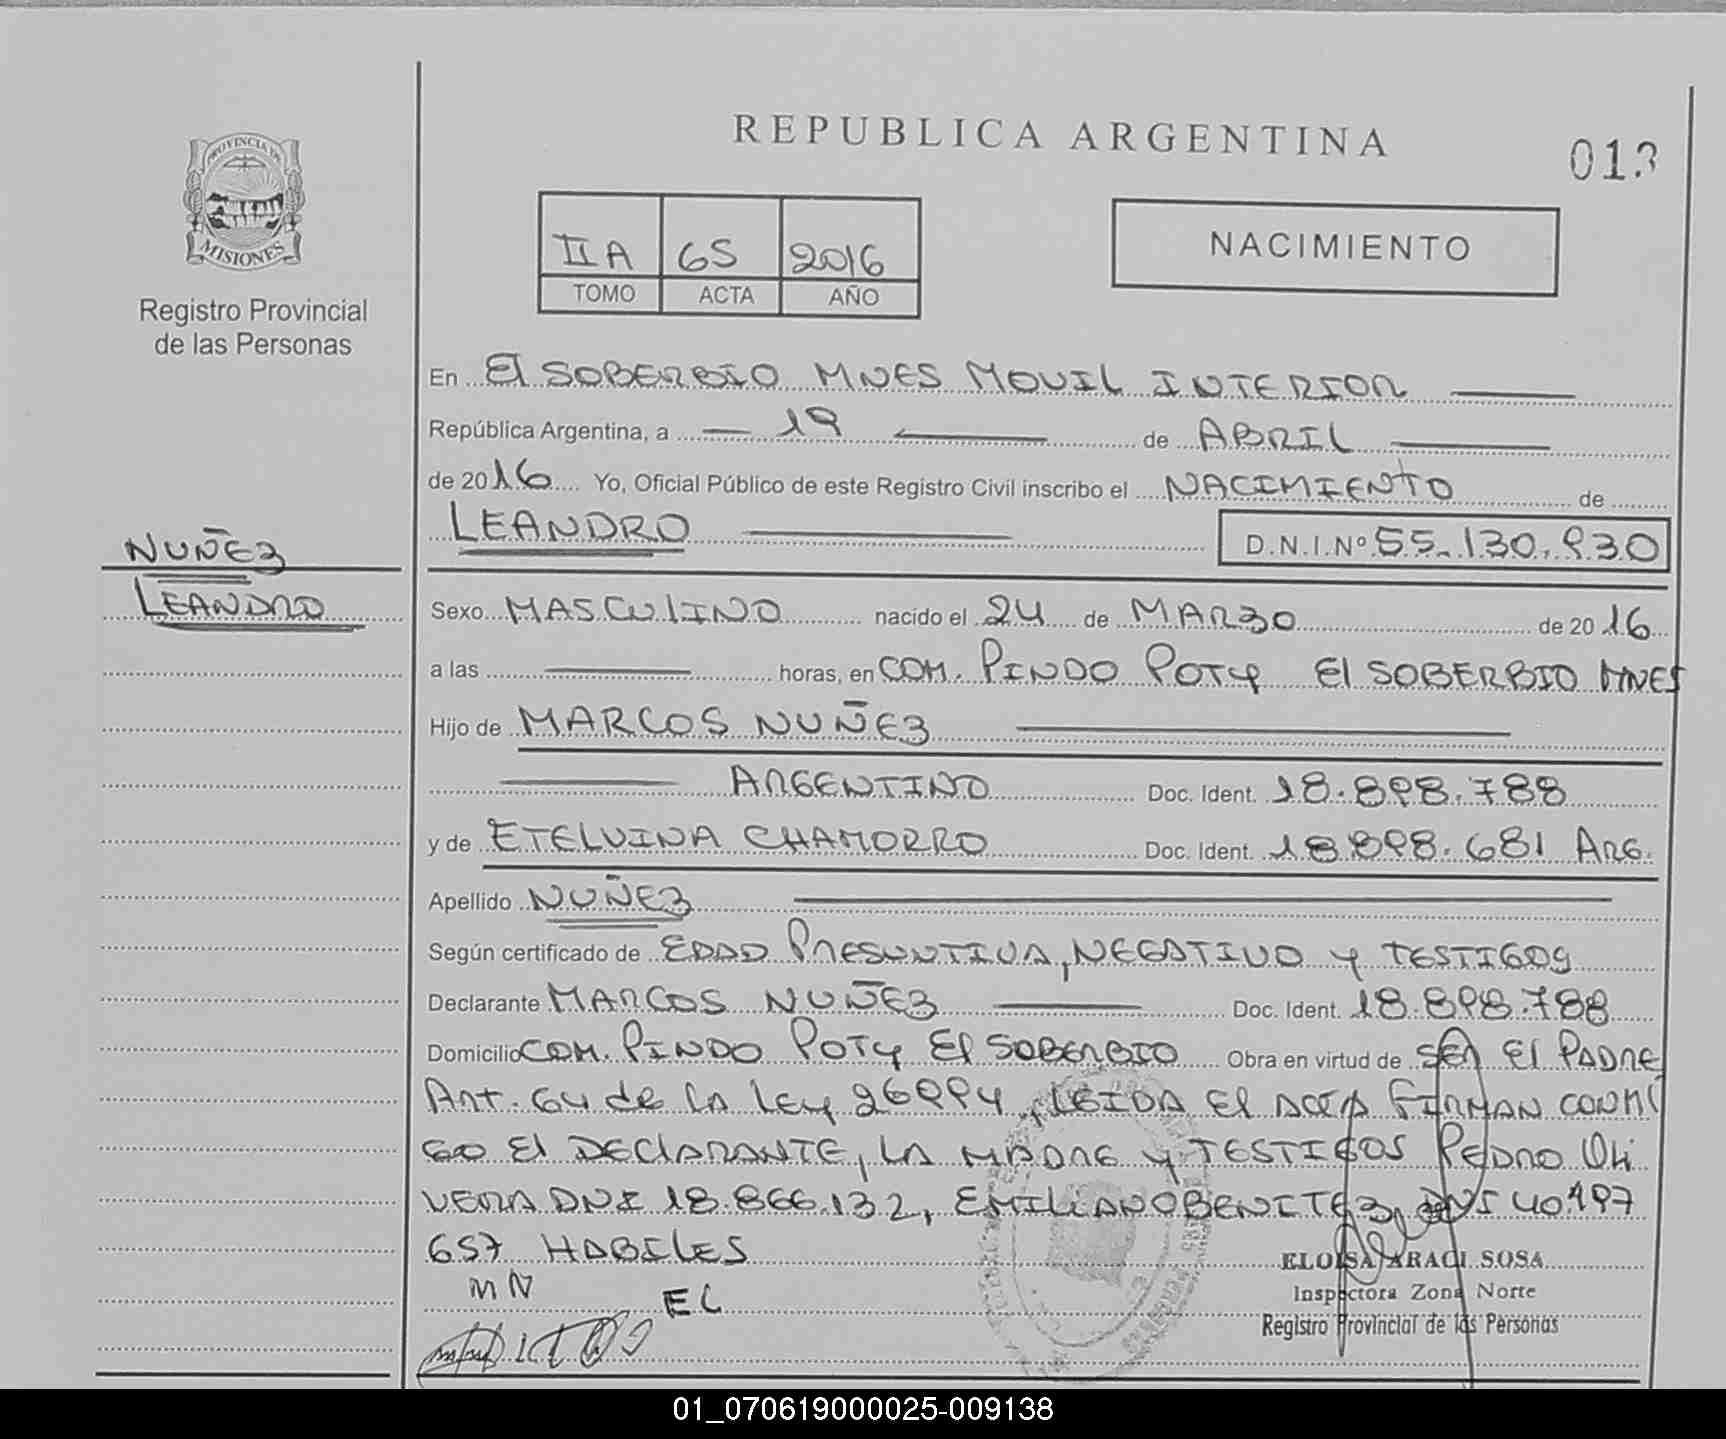 REPUBLICA ARGENTINA
013
PROVINCIA DE
MISIONES
Registro Provincial
de las Personas
IIA 65 2016
TOMO ACTA AÑO
NACIMIENTO
En El SOBERBIO MNES MOVIL INTERIOR
República Argentina, a 19 de ABRIL
de 2016 Yo, Oficial Público de este Registro Civil inscribo el NACIMIENTO de
LEANDRO D.N.I.Nº 55.130.930
NUÑEZ
LEANDRO
Sexo MASCULINO nacido el 24 de MARZO de 2016
a las horas, en COM. PINDO POTY El SOBERBIO MNES
Hijo de MARCOS NUÑEZ
ARGENTINO Doc. Ident. 18.898.788
y de ETELVINA CHAMORRO Doc. Ident. 18.898.681 ARG.
Apellido NUÑEZ
Según certificado de EDAD PRESUNTIVA, NEGATIVO y TESTIGOS
Declarante MARCOS NUÑEZ Doc. Ident. 18.898.788
Domicilio COM. PINDO POTY El SOBERBIO Obra en virtud de SER El PADRE
ART. 64 de la Ley 26994, LEIDA El ACTA FIRMAN CONMI
GO El DECLARANTE, LA MADRE y TESTIGOS PEDRO Oli
VERA DNI 18.866.132, EMILIANO BENITEZ, DNI 40.197
657 HABILES
MN
EC
ELOISA ARACI SOSA
Inspectora Zona Norte
Registro Provincial de las Personas
01_070619000025-009138